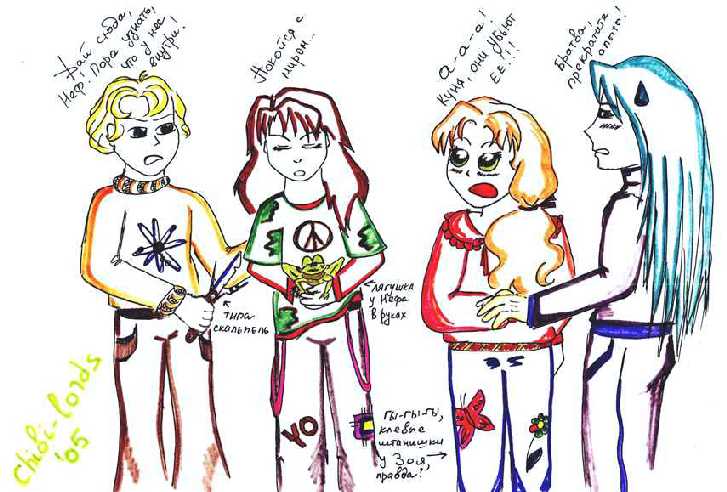 Дай сюда,
Неф. Пора узнать,
что у нас
внутри!
Покойся с
миром...
а-а-а!
Куня, они убьют
ЕЕ!!!
Братва,
прекратите
опыты!
типа
скальпель
лягушка
у Нефа
в руках
YO
Гы-гы-гы,
клевые
штанишки
у Зоя,
правда?
Chibi-Lords
'05